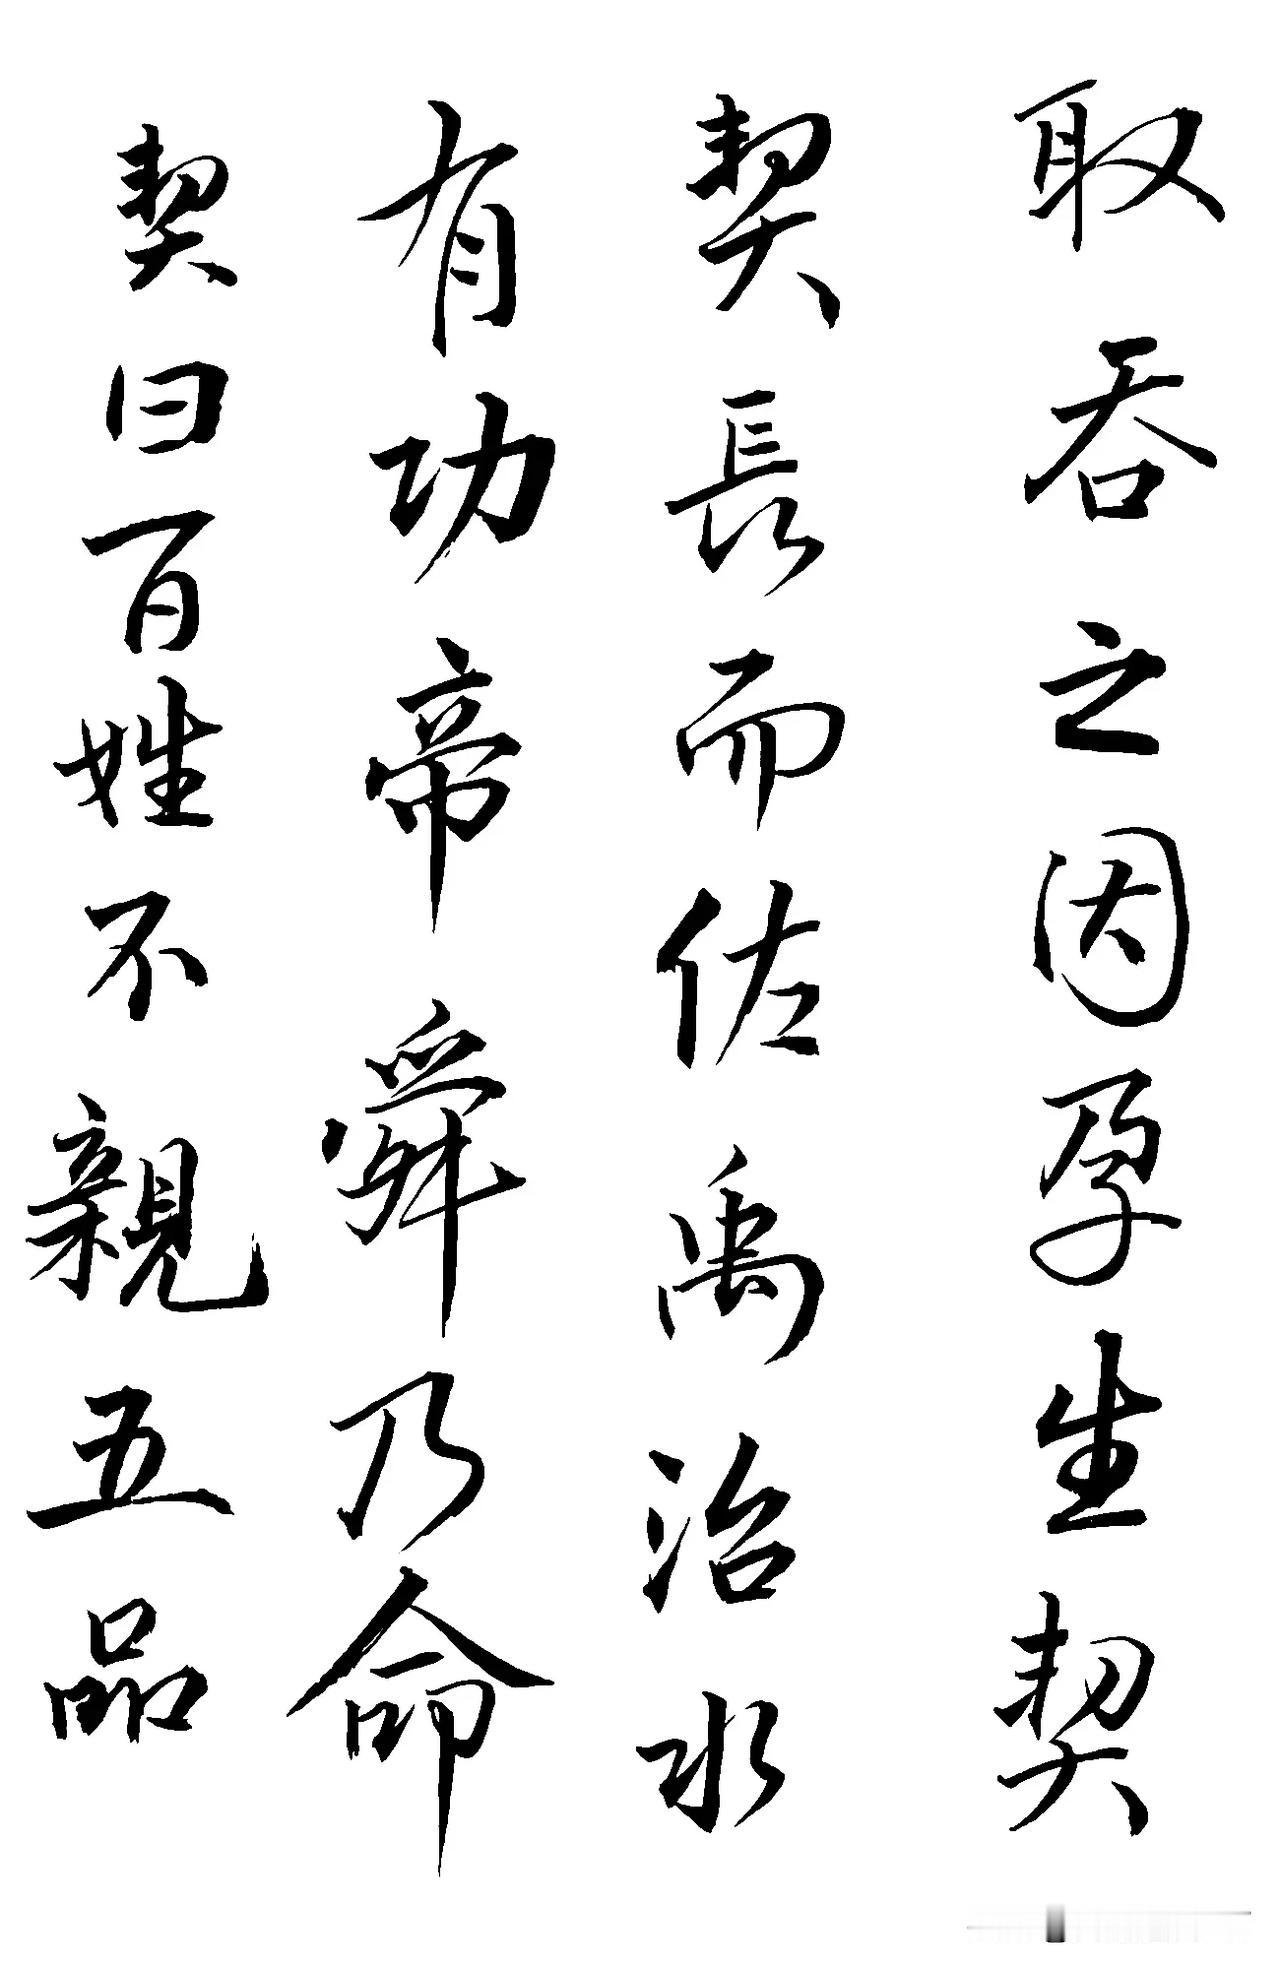 取吞之因孕生契
契長而佐禹治水
有功帝舜乃命
契曰百姓不親五品